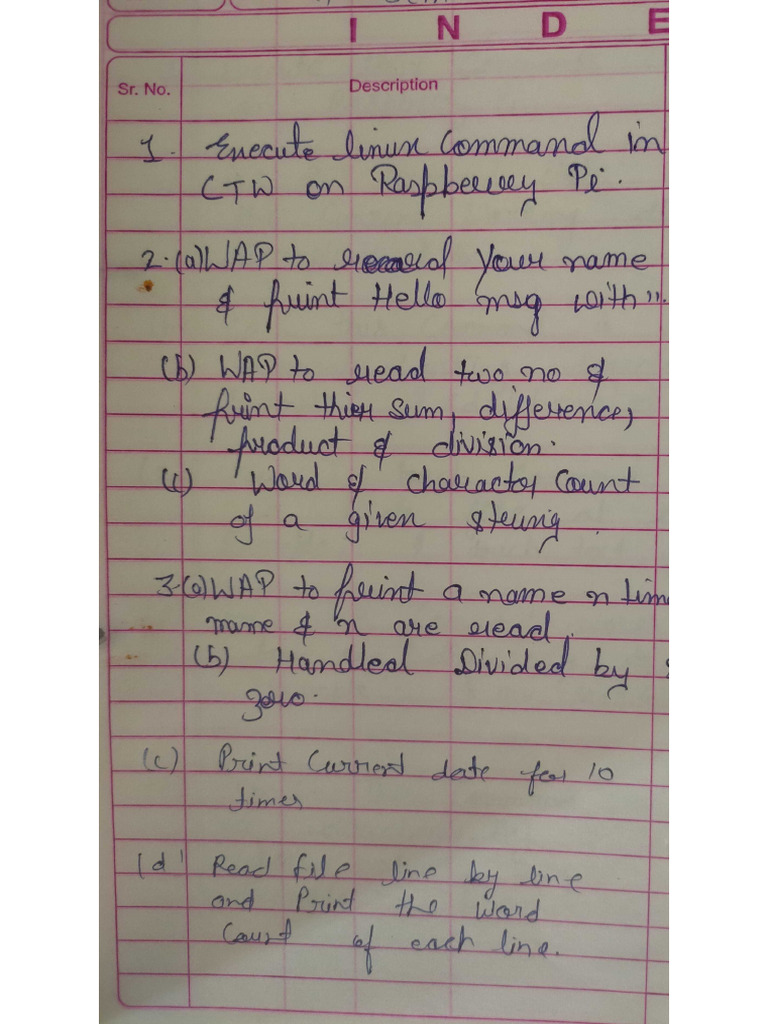 I N D E
Sr. No. Description
1. Execute linux Command in
CTW on Raspberrey Pi.
2.(a) WAP to read your name
& print Hello msg with".
(b) WAP to read two no &
print thier sum, difference,
product & division.
(c) Word & charactor Count
of a given string.
3.(a) WAP to print a name n tim
name & n are read.
(b) Handled Divided by
zero.
(c) Print Current date for 10
times
(d) Read file line by line
and Print the Word
Count of each line.